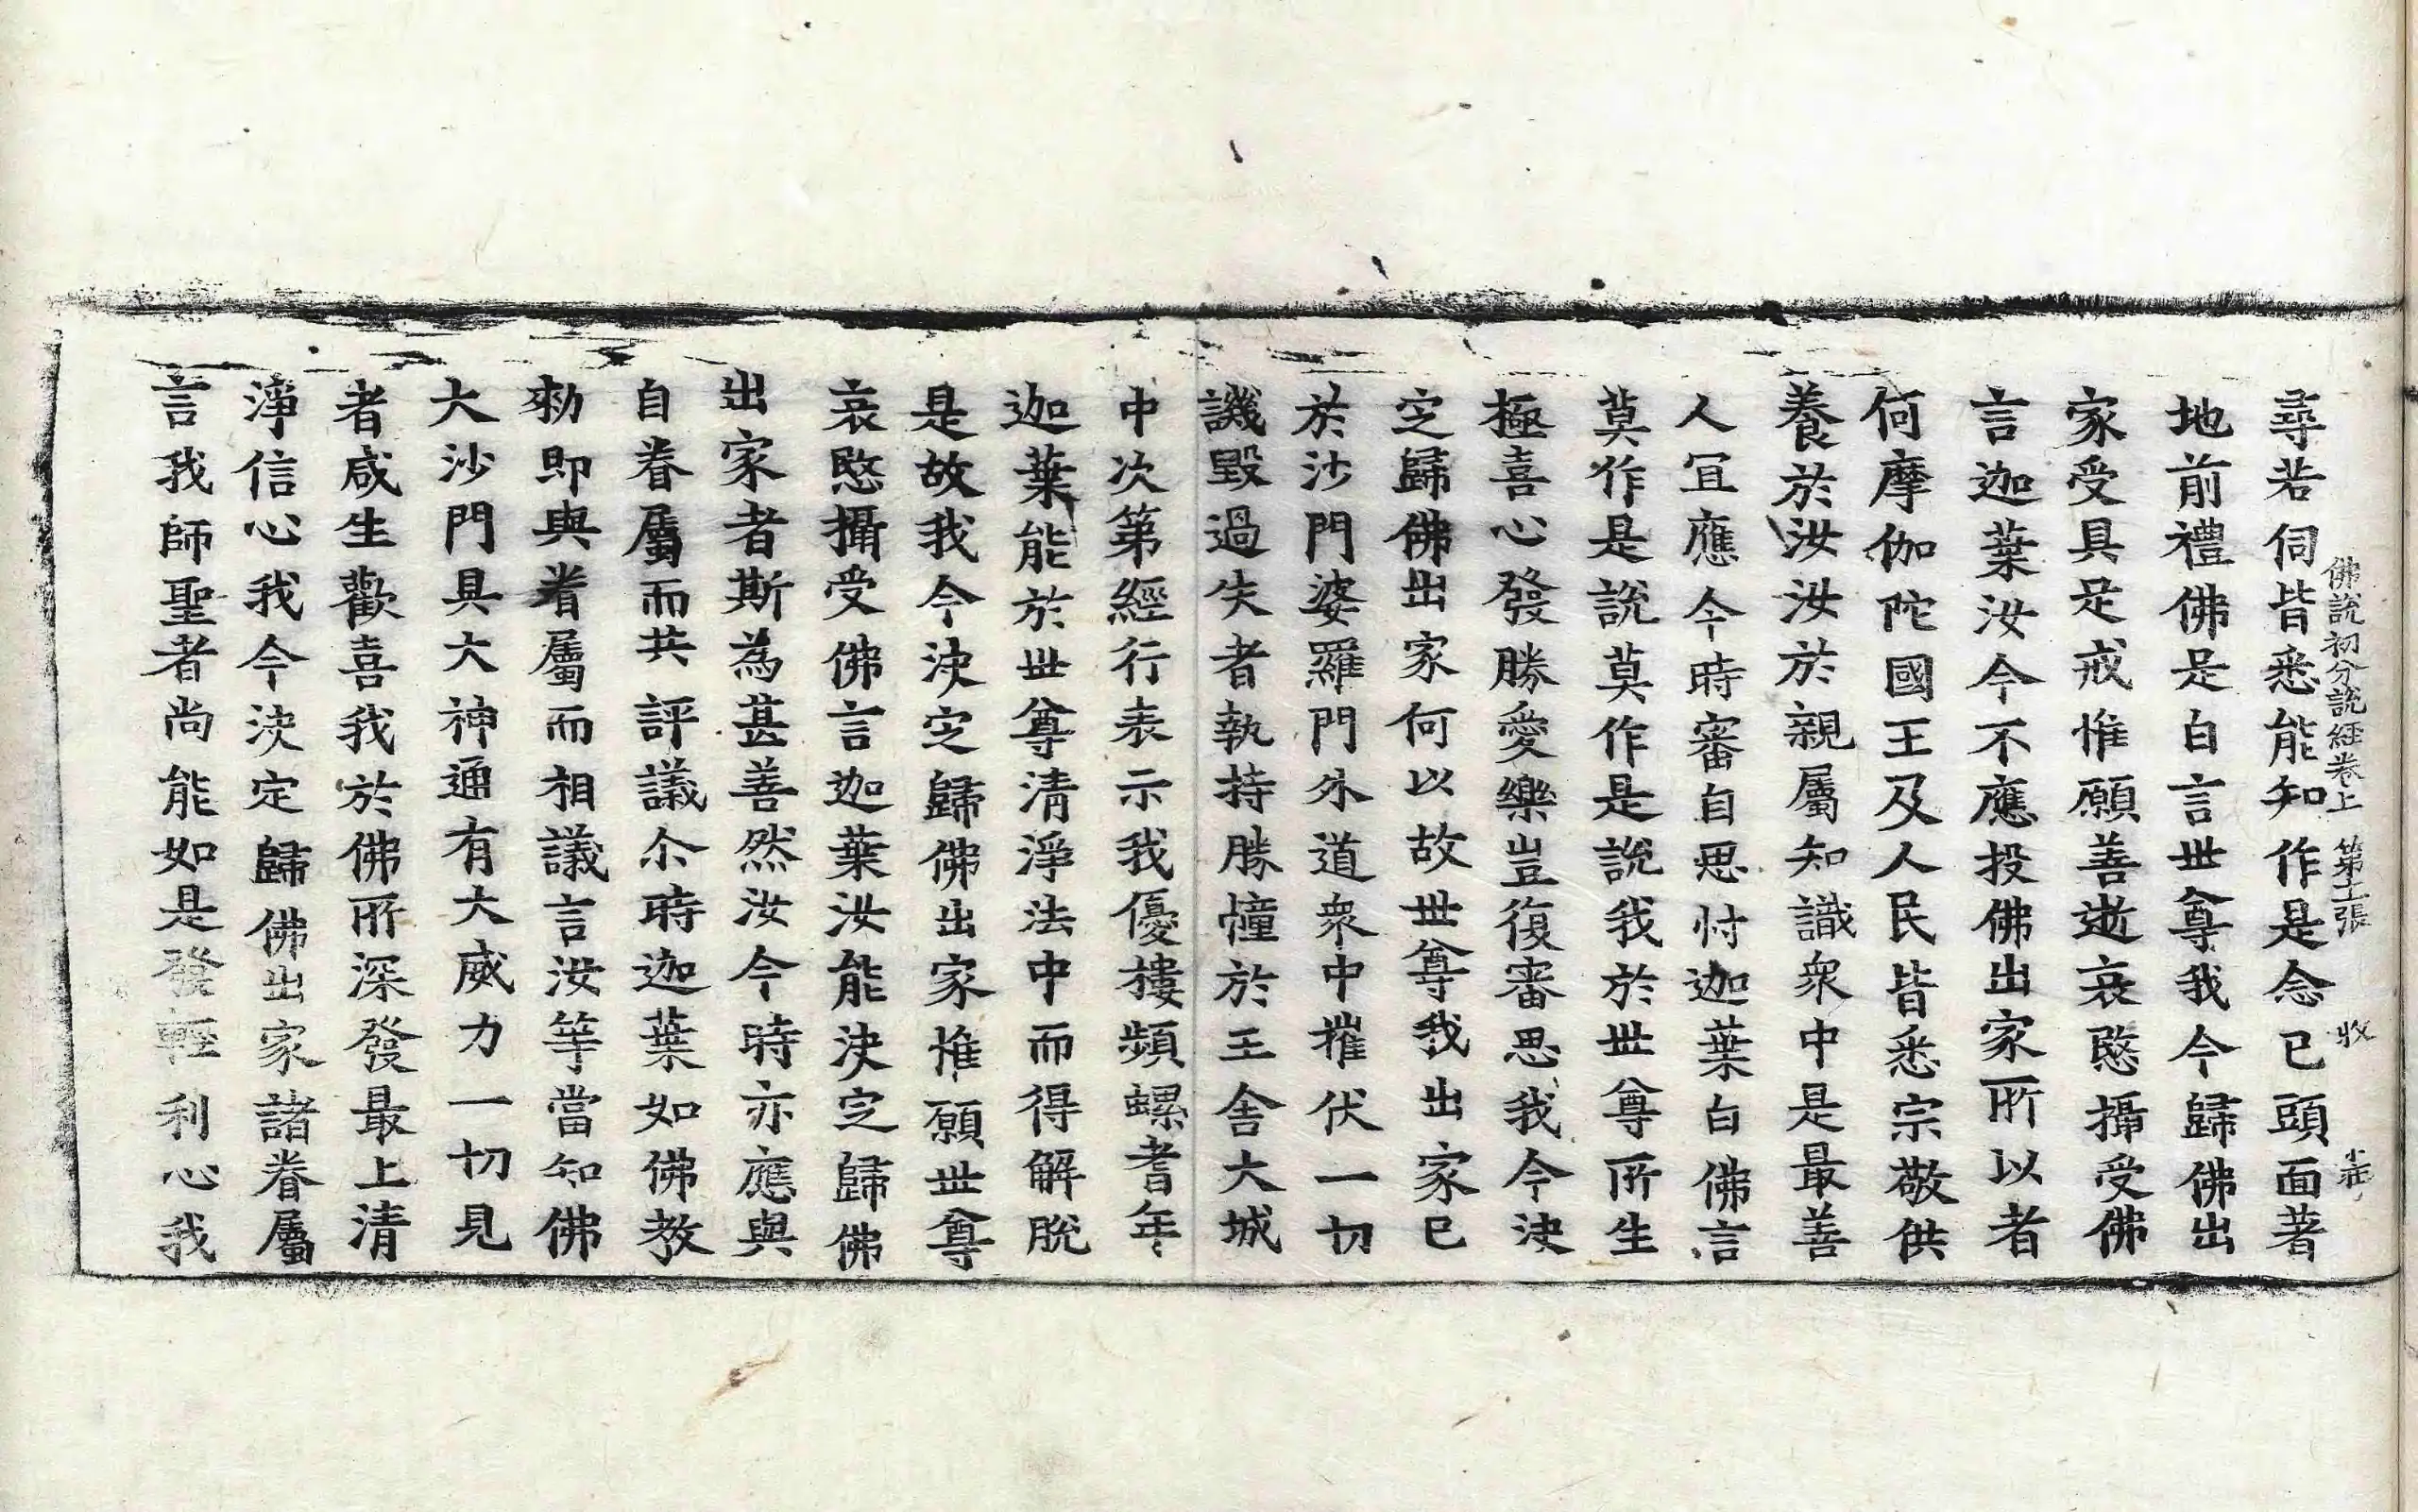 尋若伺皆悉能知作是念已頭面著
佛說初分說經卷上 第十二張 收
地前禮佛是白言世尊我今歸佛出
家受具足戒惟願善逝哀愍攝受佛
言迦葉汝今不應投佛出家所以者
何摩伽陀國王及人民皆悉宗敬供
養於汝汝於親屬知識衆中是最善
人宜應今時審自思忖迦葉白佛言
莫作是說莫作是說我於世尊所生
極喜心發勝愛樂豈復審思我今決
定歸佛出家何以故世尊我出家已
於沙門婆羅門外道衆中摧伏一切
譏毀過失者執持勝幢於王舍大城
中次第經行表示我優樓頻螺耆年
迦葉能於世尊清淨法中而得解脫
是故我今決定歸佛出家惟願世尊
哀愍攝受佛言迦葉汝能決定歸佛
出家者斯為甚善然汝今時亦應與
自眷屬而共評議尒時迦葉如佛教
勑即與眷屬而相議言汝等當知佛
大沙門具大神通有大威力一切見
者咸生歡喜我於佛所深發最上清
淨信心我今決定歸佛出家諸眷屬
言我師聖者尚能如是發輕利心我